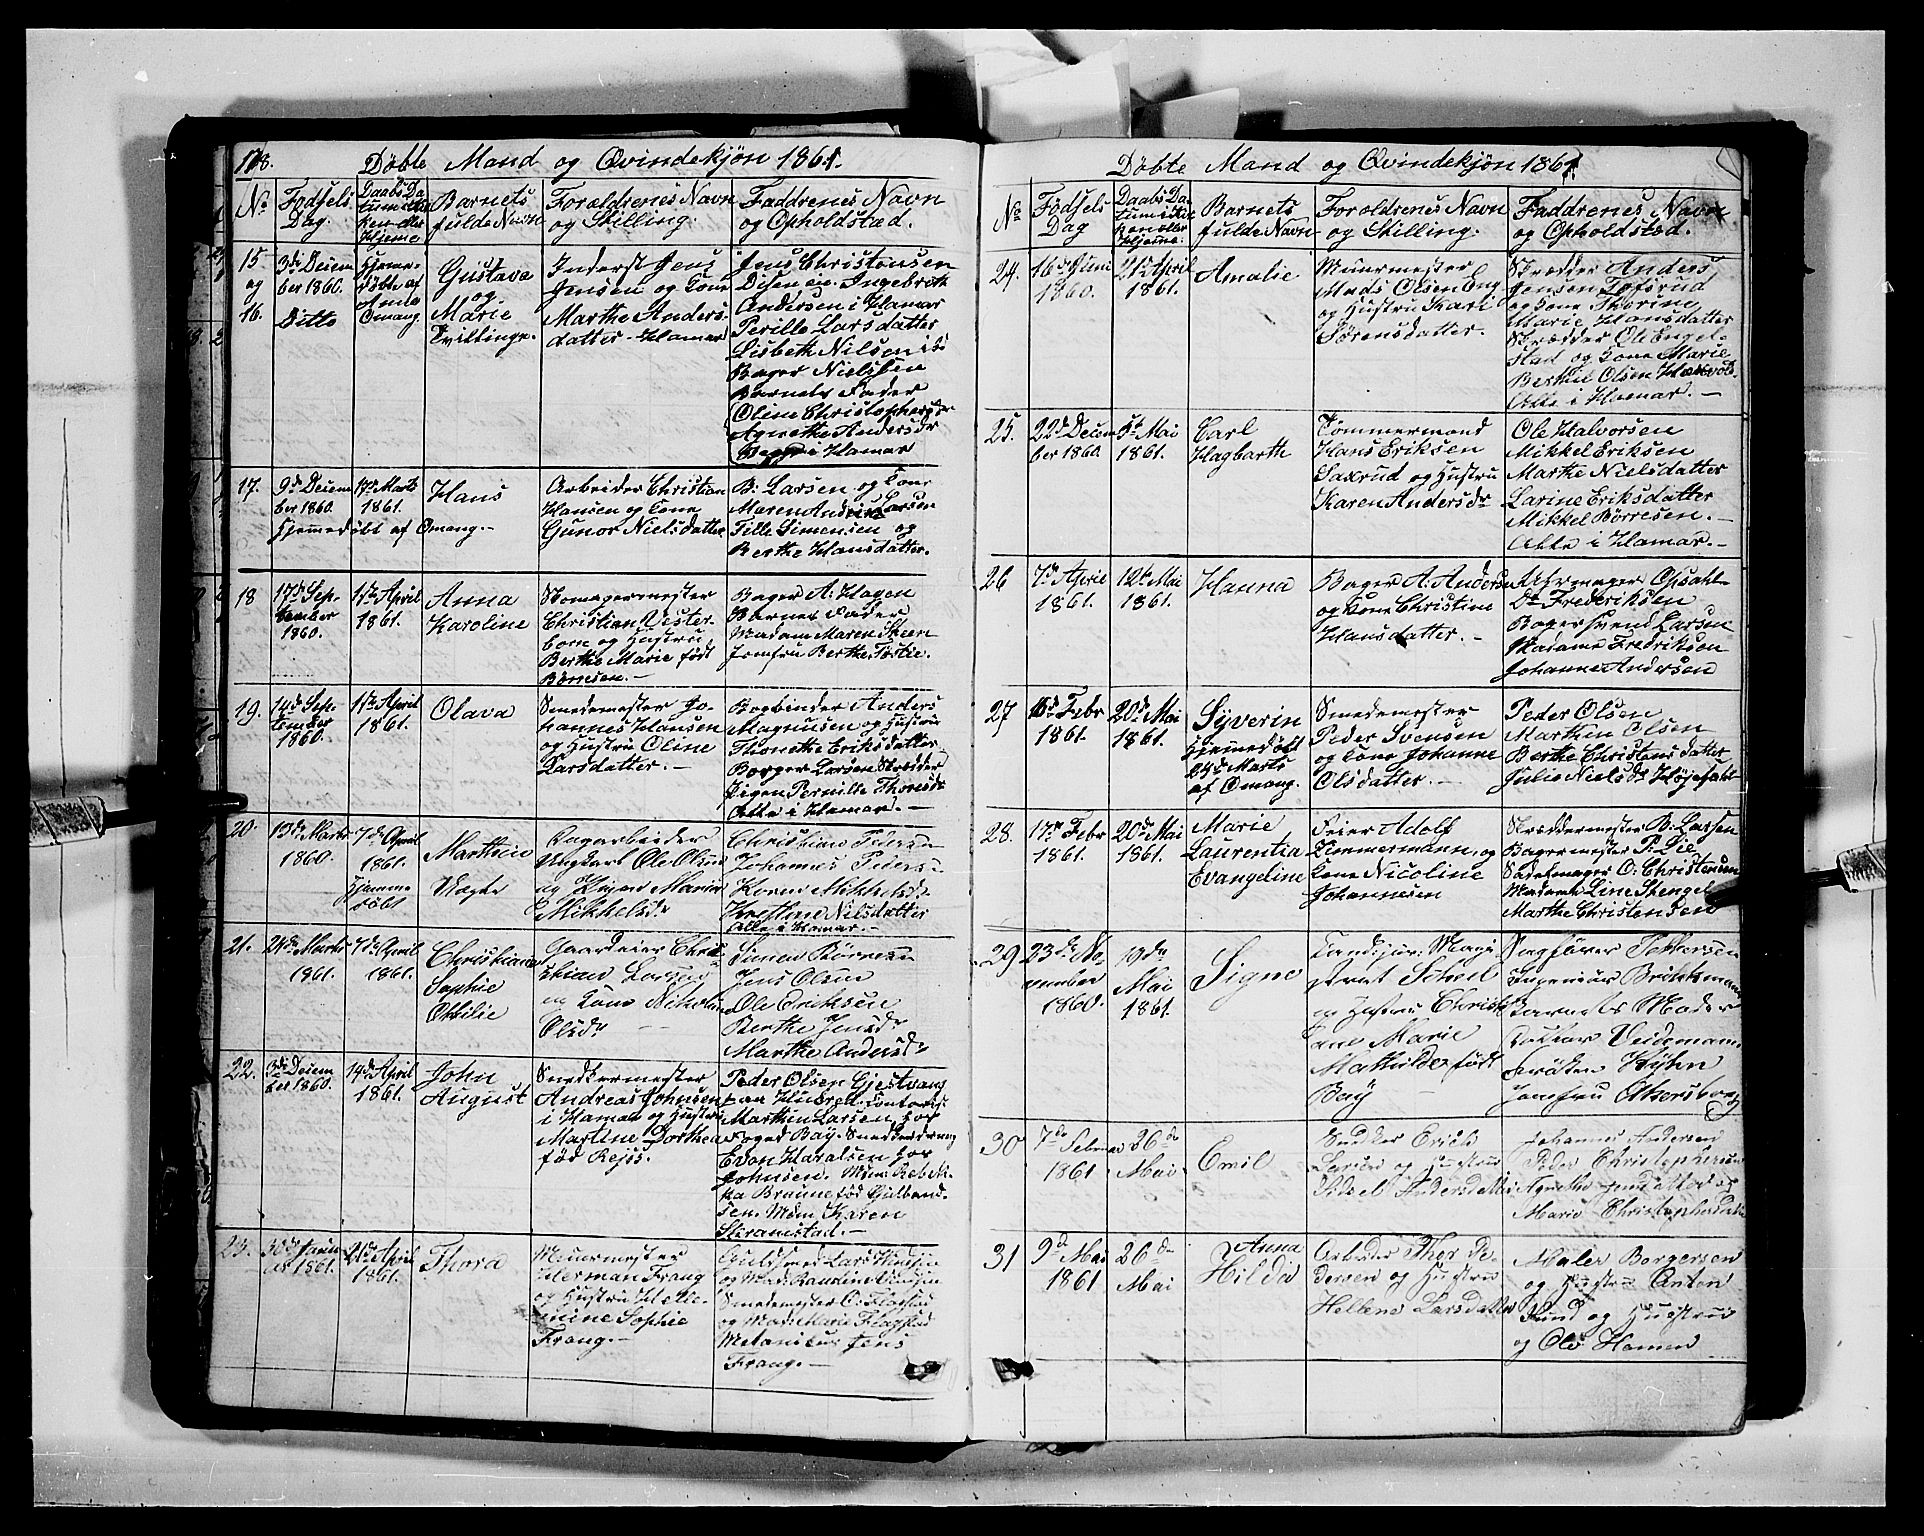 178. Døbte Mand og Qvindekjøn 1861.
No Fødsels Dag. Daabs Datum i Kirken eller Hjeme Barnets fulde Navn Forældrenes Navn og Stilling. Faddrenes Navn og Opholdstad.
15 og 16.
3de Decem
ber 1860.
Ditto
Hjeme-
døbte af
Anne
Omang
Gustava
og
Marie
Tvillinge.
Inderst Jens
Jensen og Kone
Marthe Anders
datter Hamar
Jens Christensen
Ingebreth
Andersen i Hamar
Pernille Larsdatter
Lisbeth Nilsen
Bager Nielsen
Barnets Fader
Oline Christophersdr
Agnethe Andersdr
i Hamar
17.
9de Decem
ber 1860.
17de Marts
1861.
Hjemmedøbt af Omang.-
Hans
Arbeider Christian
Hansen og Kone
Gunor Nielsdatter
B. Larsen og Kone
Maren Larsen
Tille Simensen og
Berthe Hansdatter.
18
17de Sep-
tember
1860.
1ste April
1861.
Anna
Karoline
Skomagermester
Christian Vester
og Hustru
Berthe Marie født
Børresen.-
Bager A. Hagen
Barnets Fader
Madam Maren Skeen
Jomfru Berthe Tostie.
19.
14de Sep-
tember
1860.
1ste April
1861.
Olava
Smedemester Jo-
hannes Hansen
og Hustru Oline
Larsdatter.-
Bogbinder Anders
Magnusen og Hustru
Thonette Eriksdatter
Borger Larsen Skræder
Pigen Pernille Thorsdr
Alle i Hamar.-
20.
13de Marts
1860.
7de April
1861.
Hjemme
døbt
Marthin
Uægte
Dagarbeider
Ungkarl Ole Olsen
og Pigen Maria
Mikkelsdr
Christian Pedersen
Johannes Peders
Karen Mikkelsdr
Kristine Nilsdatter
Alle i Hamar.-
21.
24de Marts
1861.
7de April
1861.
Christiane
Sophie
Othilie
Gaardeier Chris-
tian Larsen
og Kone Nikoline
Olsdr
Simen Børresen
Jens Olsen
Ole Eriksen
Berthe Jensdr
Marthe Andersdr
22.
3de Decem
ber 1860.
14de April
1861.
John
August
Snedkermester
Andreas Johnsen
i Hamar og Hustru
Martine Dorthea
fød Rejss.
Peder Olsen Gjestvang
paa Hubred. Contorist
Marthin Larsen hos
Foged Bay. Snedkerdreng
Evan Haralsen hos
Johnsen. Mdm Rebek-
ka Braune fød Gulbrand-
sen. Mdm Karen
Skramstad.-
23.
30de Janu
ar 1861.
21de April
1861.
Thora
Muurmester
Herman Frang
og Hustru Helle-
mine Sophie
Frang.-
Guldsmed Lars
og Mad:
Smedemester O. Flagstad
og Mad: Marie Flagstad
Mekanicus Jens
Frang.-
Døbte Mand og Qvindekjøn 1861
No Fødsels Dag Daabs Datum i Kirken eller Hjeme. Barnets fulde Navn Forældrenes Navn og Stilling. Faddrenes Navn og Opholdstad.
24.
16de Juni
1860.
21de April
1861.
Amalie
Muurmester
Mads Olsen Eng
og Hustru Kari
Sørensdatter.
Skrædder Anders
Jensen Tofsrud
og Kone Thorine
Marie Hansdatter
Skrædder Ole Engel-
stad og Kone Marie
Berthe Olsen
Alle i Hamar.-
25.
22de Decem
ber 1860.
5te Mai
1861.
Carl
Hagbarth
Tømmermand
Hans Eriksen
Saxrud og Hustru
Karen Andersdr
Ole Halvorsen
Mikkel Eriksen
Marthe Nielsdatter
Larine Eriksdatter
Mikkel Børresen.-
Alle i Hamar.-
26
7de April
1861.
12te Mai
1861.
Hanna
Bager A. Andersen
og Kone Christine
Hansdatter.-
Uhrmager Opsahl-
Dr Frederiksen
Bager Svend Larsen
Madame Fredriksen
Johanne Andersen
27
Febr
1861.
20de Mai
1861.
Syverin
Hjemmedøbt
24de Marts
af Omang.
Smedemester
Peder Svensen
og Kone Johanne
Olsdatter.-
Peder Olsen
Marthin Olsen
Berthe Christensdatter
Julie Nielsdr Højefeldt
28.
17de Febr
1861.
20de Mai
1861.
Marie
Laurentia
Evangeline
Feier Adolf
Zimmermann, og
Kone Nicoline
Johannesen
Skræddermester B. Larsen
Bagermester P. Lie
Sadelmager O. Christensen
Madame Line Stengel
Marthe Christensen
29
23de No
vember
1860.
19de
Mai
1861.
Signe
Candi. jur. Magi
strat Scheel
og Hustru Christi
ane Marie
Mathilde født
Bay
Sagfører Pettersen
Ingeniør Brinkmann
Barnets Moder
Doktor Veidemann
Frøken Hyhn
Jomfru Akersborg
30
7de Februar
1861
26de
Mai
Emil
Snedker Erich
Larsen og Hustru
Sidsel Andersdatter
Johannes Andersen
Peder Christophersen
Agnethe Jensdatter og
Marie Christophersdatter
31
9de Mai
1861
26de
Mai
Anna
Hilda
Arbeider Thor Pe-
dersen og Hustru
Hellene Larsdatter
Maler Borgersen
og Hustru Anton
Lund og Hustru
og Ole Hansen